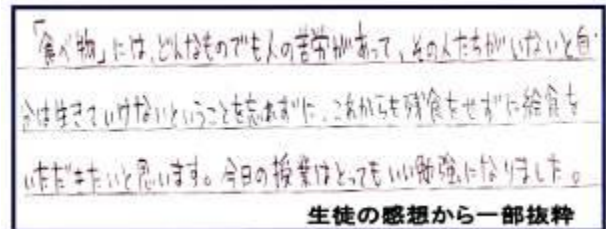 「食べ物」には、どんなものでも人の苦労があって、その人たちがいないと自
分は生きていけないということを忘れずに、これからも残食をせずに給食を
いただきたいと思います。今日の授業はとってもいい勉強になりました。
生徒の感想から一部抜粋